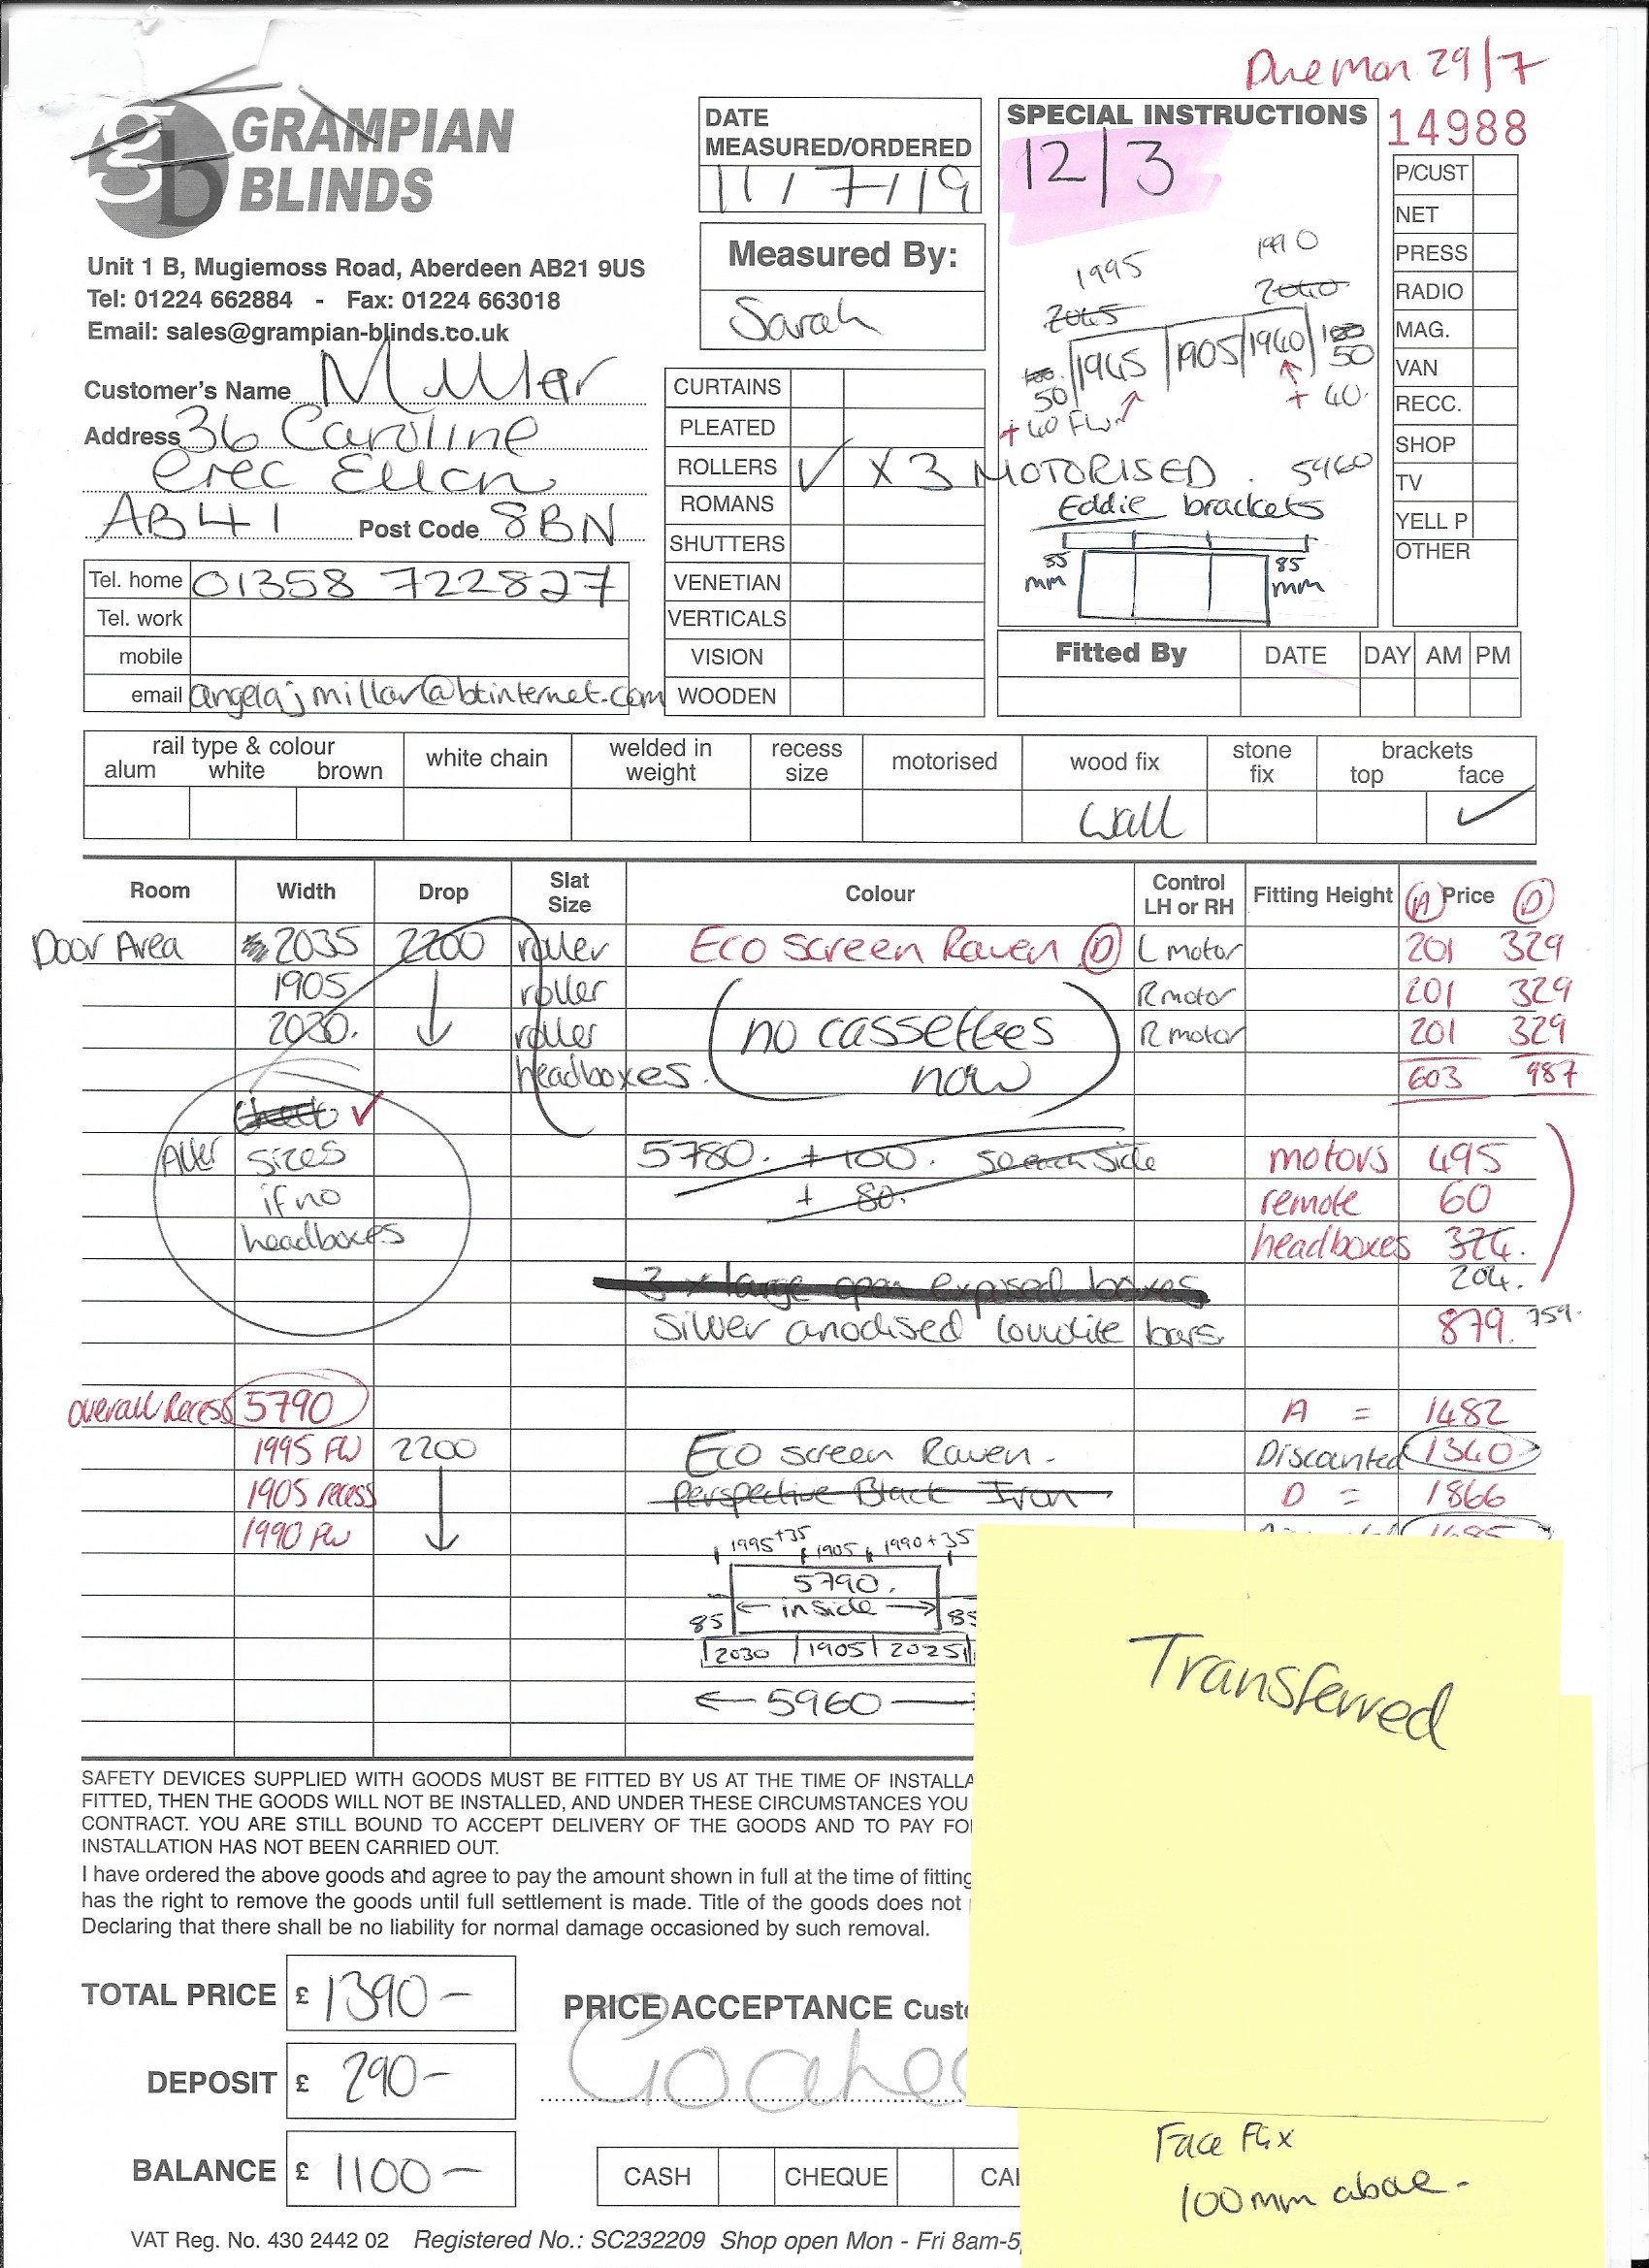 Due Mon 29/7
GRAMPIAN
BLINDS
gb
Unit 1 B, Mugiemoss Road, Aberdeen AB21 9US
Tel: 01224 662884 - Fax: 01224 663018
Email: sales@grampian-blinds.co.uk
DATE
MEASURED/ORDERED
11/7/19
Measured By:
Sarah
SPECIAL INSTRUCTIONS
12/3
1995 1990
2045 2040
1945 1905 1940
50 50
+40 FW +40.
5960
Eddie brackets
85 mm 85 mm
14988
P/CUST
NET
PRESS
RADIO
MAG.
VAN
RECC.
SHOP
TV
YELL P
OTHER
Customer's Name Millar
Address 36 Caroline
Cres Ellon
AB41 Post Code 8BN
Tel. home 01358 722827
Tel. work
mobile
email angelajmillar@btinternet.com
CURTAINS
PLEATED
ROLLERS ✓ X 3 MOTORISED.
ROMANS
SHUTTERS
VENETIAN
VERTICALS
VISION
WOODEN
Fitted By DATE DAY AM PM
rail type & colour
alum white brown
white chain
welded in weight
recess size
motorised
wood fix
stone fix
brackets
top face
Wall ✓
Room Width Drop Slat Size Colour Control LH or RH Fitting Height (A) Price (D)
Door Area 2035 2200 roller Eco Screen Raven (D) L motor 201 329
1905 roller R motor 201 329
2030. roller (no cassettes R motor 201 329
headboxes. now) 603 987
✓
Alter sizes 5780. + 100. 50 each side motors 495
if no + 80. remote 60
headboxes headboxes 324.
3 x large open exposed boxes 204.
Silver anodised louvolite bars. 879. 759.
Overall Recess 5790 A = 1482
1995 FW 2200 Eco screen Raven. Discounted 1340
1905 recess Perspective Black Iron D = 1866
1990 FW
1995+35 1905 1990+35
5790.
← inside →
85 85
2030 1905 2025
← 5960
Transferred
SAFETY DEVICES SUPPLIED WITH GOODS MUST BE FITTED BY US AT THE TIME OF INSTALLA
FITTED, THEN THE GOODS WILL NOT BE INSTALLED, AND UNDER THESE CIRCUMSTANCES YOU
CONTRACT. YOU ARE STILL BOUND TO ACCEPT DELIVERY OF THE GOODS AND TO PAY FO
INSTALLATION HAS NOT BEEN CARRIED OUT.
I have ordered the above goods and agree to pay the amount shown in full at the time of fitting
has the right to remove the goods until full settlement is made. Title of the goods does not
Declaring that there shall be no liability for normal damage occasioned by such removal.
TOTAL PRICE £ 1390-
PRICE ACCEPTANCE Custo
Goahea
DEPOSIT £ 290-
BALANCE £ 1100-
CASH CHEQUE CA
Face Fix
100mm above.
VAT Reg. No. 430 2442 02 Registered No.: SC232209 Shop open Mon - Fri 8am-5